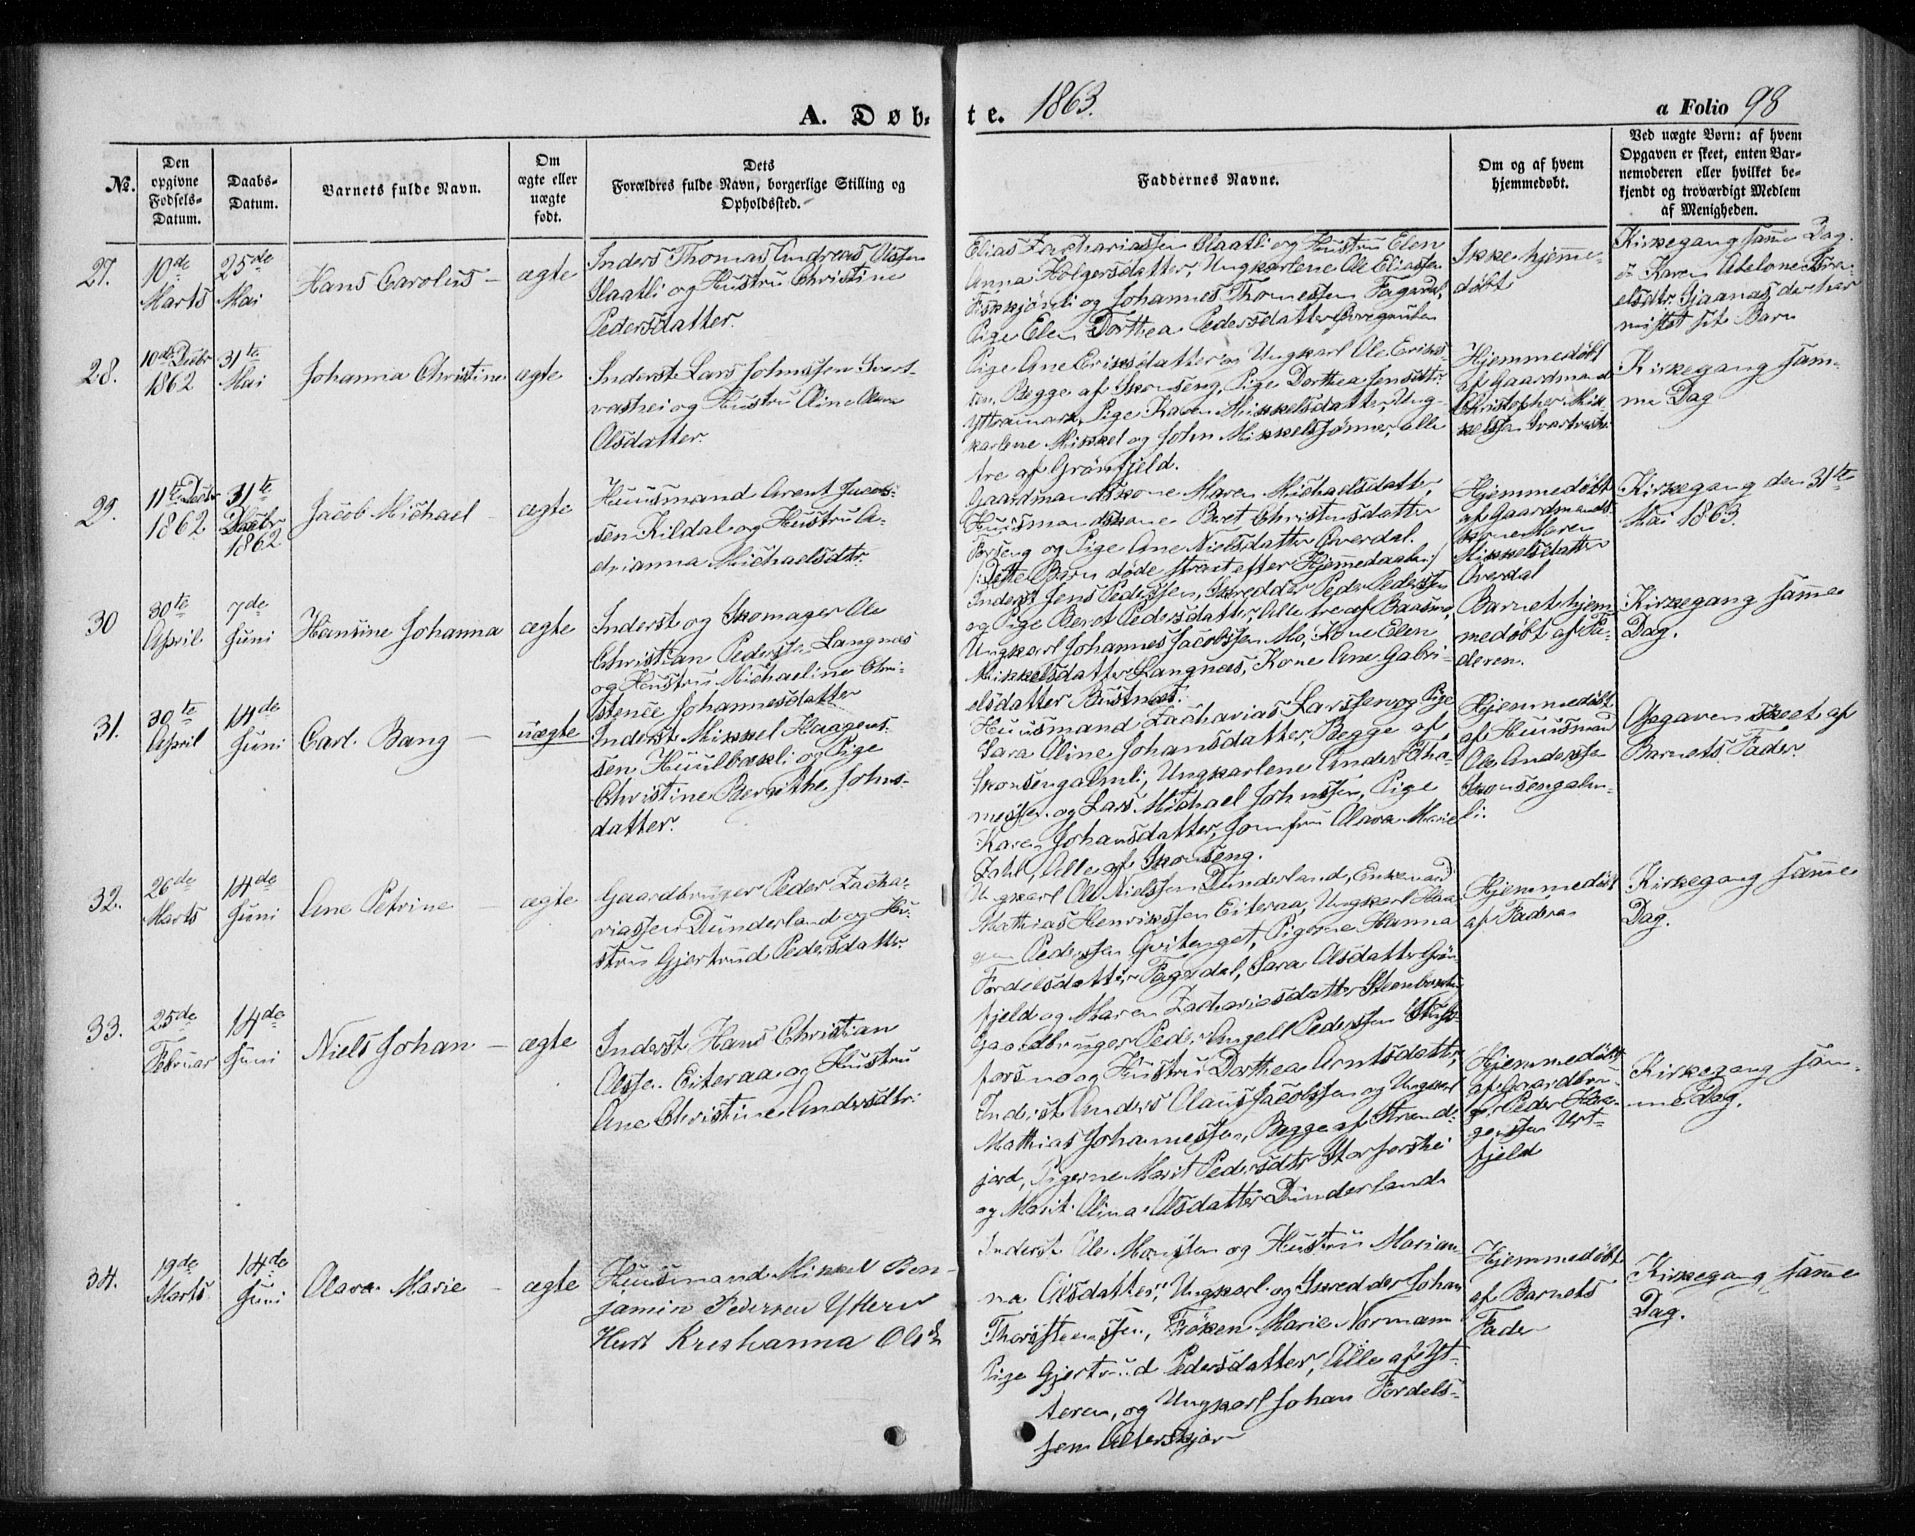 A. Døb-
te. 1863.
a Folio 98
No.
Den opgivne Fødsels-Datum.
Daabs-Datum.
Barnets fulde Navn.
Om ægte eller uægte født.
Dets
Forældres fulde Navn, borgerlige Stilling og
Opholdssted.
Faddernes Navne.
Om og af hvem
hjemmedøbt.
Ved uægte Børn: af hvem
Opgaven er skeet, enten Bar-
nemoderen eller hvilket be-
kjendt og troværdigt Medlem
af Menigheden.
27.
10de
Marts
25de
Mai
Hans Carolus
ægte
Inders Thomas Andreas Olssen
Slaatli og Hustru Christine
Pedersdatter.
Elias Zachariassen Slaatli og Hustru Elen
Anna Holgersdatter, Ungkarlene Ole Eliassen
og Johannes Thomessen
Pige Elen Dorthea Pedersdatter
Ikke hjemme-
døbt
Kirkegang samme Dag.
Karen
elsdtr. der har
mistet sit Barn
28.
10de Decbr
1862
31te
Mai
Johanna Christine
ægte
Inderst Lars Johnssen Svart-
vashei og Hustru Aline
Olsdatter.
Pige Ane Eriksdatter og Ungkarl Ole Eriks-
sen, Begge af Skonseng, Pige Dorthea Jensdttr
Yttremark, Pige Karen Mikkelsdatter, Ung-
karlene Mikkel og John Mikkelssønner, alle
tre af Grønfjeld.
Hjemmedøbt
af Gaardmand
Christopher Mik-
kelssen
Kirkegang sam-
me Dag
29.
11te Decbr
1862
31te
Decbr
1862
Jacob Michael
ægte
Huusmand Arent Jacob-
sen Kildal og Hustru A-
drianna Michaelsdtr.
Gaardmandskone Maren Michaelsdatter,
Huusmandskone Beret Christensdatter
og Pige Ane Nielsdatter Överdal.
/: Dette Barn døde strax efter Hjemmedaaben :/
Hjemmedøbt
af Gaardmands-
kone Maren
Mikkelsdatter
Överdal
Kirkegang den 31te
Mai 1863.
30
30te
April
7de
Juni
Hansine Johanna
ægte
Inderst og Skomager Ole
Christian Peders. Langnes
og Hustru Michaeline Chri-
stence Johannesdatter
Inderst Jens Pederssen, Skredder Peder Pederssen
og Pige Beret Pedersdatter, Alle tre af Baasmo,
Ungkarl Johannes Jacobssen Mo, Kone Elen
Mikkelsdatter Langnes, Kone Ane Gabri-
elsdatter Bustnes.
Barnet hjem-
medøbt af Fa-
deren.
Kirkegang samme
Dag.
31.
30te
April
14de
Juni
Carl Bang
uægte
Inderst Mikkel Haagens-
sen, Huulbækli og Pige
Christine Berithe Johns-
datter.
Huusmand Zacharias Larssen og Pige
Sara Oline Johansdatter, Begge af
Skonsengalmli, Ungkarlene Anders Tho-
messen og Lars Michael Johnssen, Pige
Karen Johansdatter, Jomfru Olava Marie
Zahl, Alle af Skonseng.
Hjemmedøbt
af Huusmand
Ole Anderssen
Skonsengalm-
li.
Opgaven skeet af
Barnets Fader.
32.
26de
Marts
14de
Juni
Ane Petrine
ægte
Gaardbruger Peder Zacha-
riassen Dunderland og Hu-
stru Gjertrud Pedersdattr.
Ungkarl Ole Nielssen Dunderland, Enkemand
Mathias Henrikssen Eiteraa, Ungkarl Haa-
gen Pederssen Qvitenget, Pigerne Hanna
Fordelsdatter, Sara Olsdatter Grøn-
fjeld og Maren Zachariasdatter
Hjemmedøbt
af Faderen
Kirkegang samme
Dag.
33.
25de
Februar
14de
Juni
Niels Johan
ægte
Inderst Hans Christian
Olssen Eiteraa og Hustru
Ane Christine Andersdtr.
Gaardbruger Peder Angell Pederssen Stor-
forsmo og Hustru Dorthea Arntsdatter,
Inderst Anders Olaus Jacobssen og Ungkarl
Mathias Johannessen, Begge af Strand-
jord, Pigerne Marit Pedersdtr Storforshei
og Marit Olina Olsdatter Dunderland
Hjemmedøbt
af Gaardbru-
ger Peder Haa-
genssen
fjeld
Kirkegang sam-
me Dag.
34.
19de
Marts
14de
Juni
Olava Marie
ægte
Huusmand Mikkel Ben-
jamin Pedersen Ytteren
Hust Kreshanna Olsd.
Inderst Ole Monssen og Hustru Marian-
na Olsdatter, Ungkarl og Skredder Johan
Thorsteenssen, Frøken Marie Normann
Pige Gjertrud Pedersdatter, Alle af Yt-
teren, og Ungkarl Johan Fordels-
sen
Hjemmedøbt
af Barnets
Fader
Kirkegang samme
Dag.